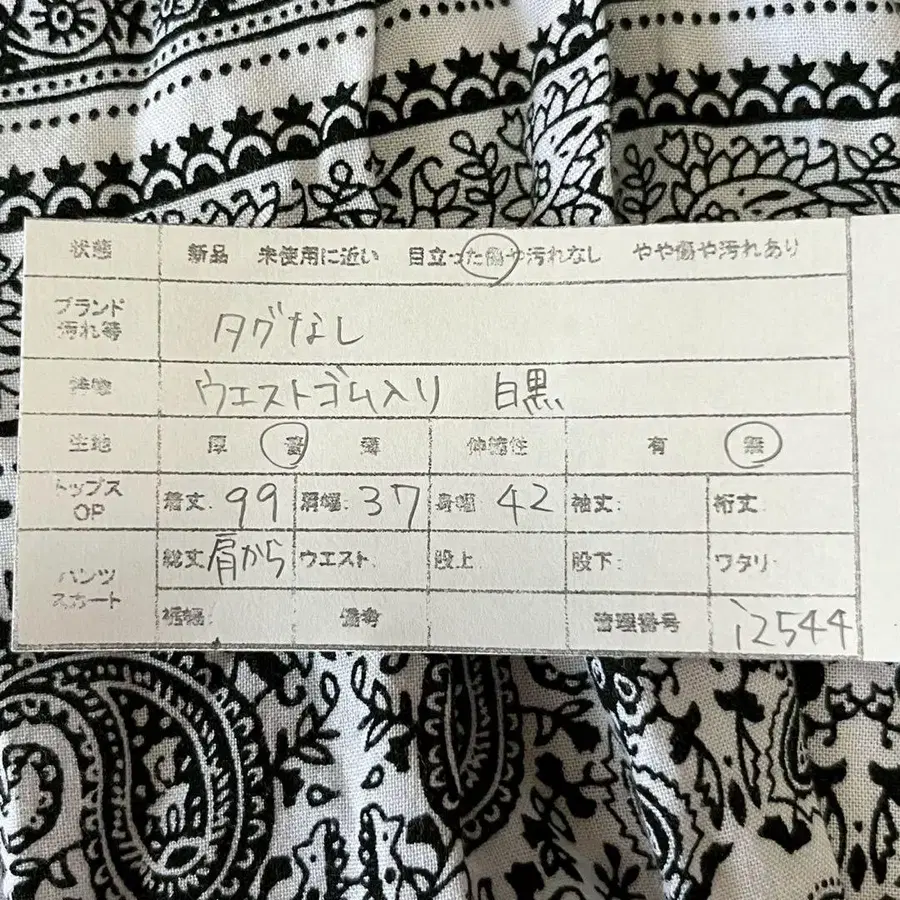 状態 新品 未使用に近い 目立った傷や汚れなし やや傷や汚れあり
ブランド
汚れ等 タグなし
特徴 ウエストゴム入り 白黒
生地 厚 普 薄 伸縮性 有 無
トップス
OP 着丈: 99 肩幅: 37 身幅 42 袖丈: 裄丈:
パンツ
スカート 総丈 肩から ウエスト 股上 股下: ワタリ
裾幅 備考 管理番号 i2544